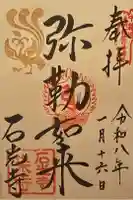 奉拝
令和八年
一月十六日
弥勒如来
石光寺